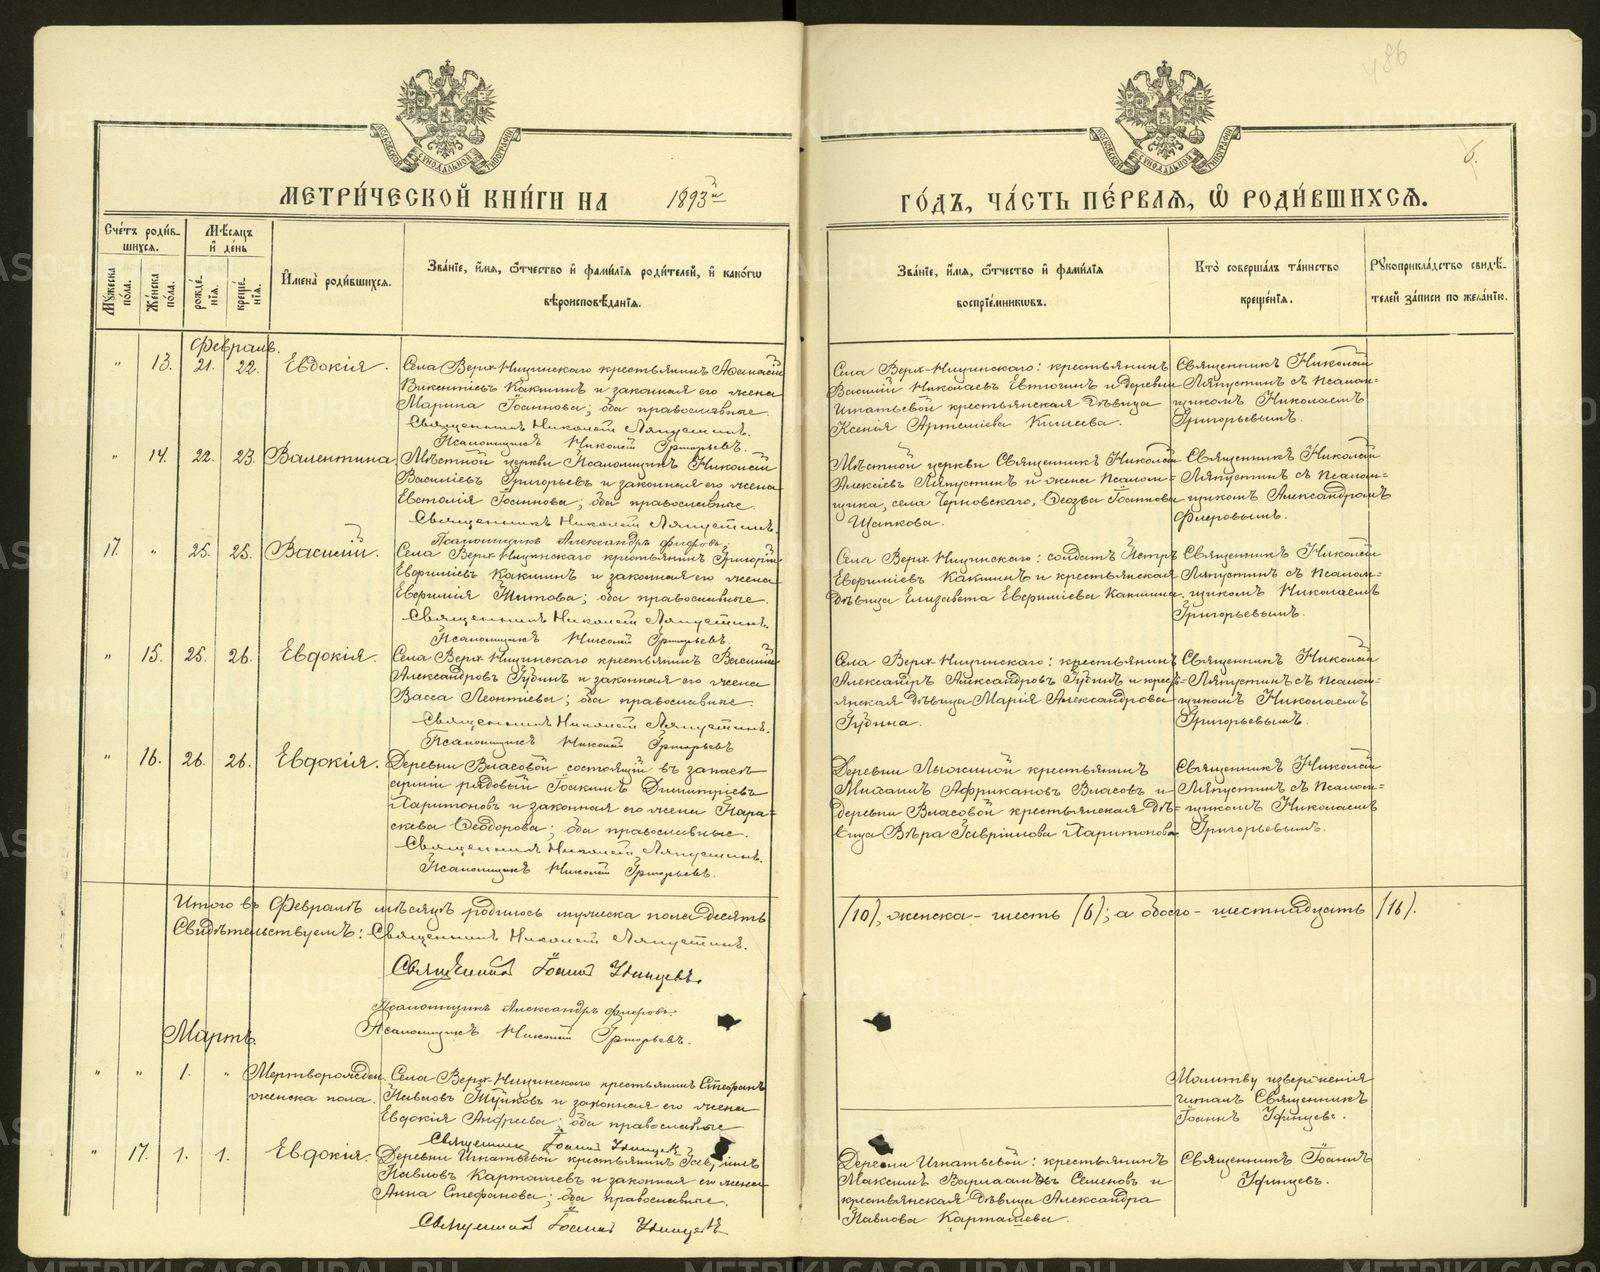 486
6.
МЕТРИ́ЧЕСКОЙ КНИ́ГИ НА 1893й
ГО́ДЪ, ЧА́СТЬ ПЕ́РВАѦ, Ѡ҆ РОДИ́ВШИХСѦ.
Сче́тъ роди́в-
шихся.
Мѣ́сяцъ
и҆ де́нь
Му́жеска по́ла.
Же́нска по́ла.
рожде́-
нїя.
креще́-
нїя.
И҆мена̀ роди́вшихся.
Зва́нїе, и҆́мя, ѻ҆́тчество и҆ фами́лїя роди́телей, и҆ како́гѡ
вѣроисповѣ́данїя.
Зва́нїе, и҆́мя, ѻ҆́тчество и҆ фами́лїя
воспрїе́мниковъ.
Кто̀ соверша́лъ та́инство
креще́нїя.
Рꙋкоприкла́дство свидѣ́-
телей за́писи по жела́нїю.
Февраль.
" 13. 21. 22. Евдокія.
Села Верх-Ницинскаго крестьянинъ Аѳанасій
Викентіевъ Какшинъ и законная его жена
Марина Іоаннова; оба православные.
Священникъ Николай Ляпустинъ.
Псаломщикъ Николай Григорьевъ.
Села Верх-Ницинскаго: крестьянинъ
Василій Николаевъ Евтюгинъ и деревни
Игнатьевой крестьянская дѣвица
Ксенія Артеміева
Священникъ Николай
Ляпустинъ съ псалом-
щикомъ Николаемъ
Григорьевымъ.
" 14. 22. 23. Валентина
Мѣстной церкви Псаломщикъ Николай
Василіевъ Григорьевъ и законная его жена
Евстолія Іоаннова; оба православные.
Священникъ Николай Ляпустинъ.
Псаломщикъ Александръ Флеровъ.
Мѣстной церкви Священникъ Николай
Алексіевъ Ляпустинъ и жена псалом-
щика, села Черновскаго, Ѳеозва Іоаннова
Щапкова.
Священникъ Николай
Ляпустинъ съ псалом-
щикомъ Александромъ
Флеровымъ.
17. " 25. 25. Василій.
Села Верх-Ницинскаго крестьянинъ Григорій
Евфиміевъ Какшинъ и законная его жена
Евфимія Титова; оба православные.
Священникъ Николай Ляпустинъ.
Псаломщикъ Николай Григорьевъ.
Села Верх-Ницинскаго: солдатъ Петръ
Евфиміевъ Какшинъ и крестьянская
дѣвица Елизавета Евфиміева Какшина.
Священникъ Николай
Ляпустинъ съ псалом-
щикомъ Николаемъ
Григорьевымъ.
" 15. 25. 26. Евдокія.
Села Верх-Ницинскаго крестьянинъ Василій
Александровъ Губинъ и законная его жена
Васса Леонтіева; оба православные.
Священникъ Николай Ляпустинъ.
Псаломщикъ Николай Григорьевъ
Села Верх-Ницинскаго: крестьянинъ
Александръ Александровъ Губинъ и кресть-
янская дѣвица Марія Александрова
Губина.
Священникъ Николай
Ляпустинъ съ псалом-
щикомъ Николаемъ
Григорьевымъ.
" 16. 26. 26. Евдокія.
Деревни Власовой состоящій въ запасѣ
арміи рядовый Іоакимъ Димитріевъ
Харитоновъ и законная его жена Пара-
скева Ѳеодорова; оба православные.
Священникъ Николай Ляпустинъ.
Псаломщикъ Николай Григорьевъ.
Деревни Лыжиной крестьянинъ
Михаилъ Африкановъ Власовъ и
деревни Власовой крестьянская дѣ-
вица Вѣра Гавріилова Харитонова
Священникъ Николай
Ляпустинъ съ псалом-
щикомъ Николаемъ
Григорьевымъ.
Итого въ Февралѣ мѣсяцѣ родилось мужеска пола десять (10), женска - шесть (6); а обоего - шестнадцать (16).
Свидѣтельствуемъ: Священникъ Николай Ляпустинъ.
Священникъ Іоаннъ Уфинцевъ.
Псаломщикъ Александръ Флеровъ.
Псаломщикъ Николай Григорьевъ.
Мартъ.
" " 1. " Мертворожден.
женска пола.
Села Верх-Ницинскаго крестьянинъ Стефанъ
Павловъ и законная его жена
Евдокія Андреева; оба православные
Священникъ Іоаннъ Уфинцевъ
Молитву изверженія
читалъ Священникъ
Іоаннъ Уфинцевъ.
" 17. 1. 1. Евдокія.
Деревни Игнатьевой крестьянинъ Гавріилъ
Павловъ Карташевъ и законная его жена
Анна Стефанова; оба православные.
Священникъ Іоаннъ Уфинцевъ
Деревни Игнатьевой: крестьянинъ
Максимъ Варлаамовъ Семеновъ и
крестьянская дѣвица Александра
Павлова Карташева.
Священникъ Іоаннъ
Уфинцевъ.